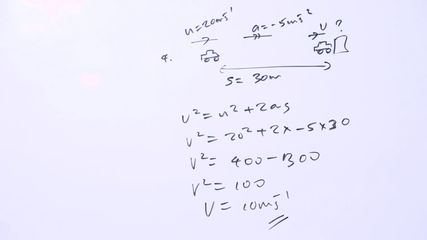 u=20ms⁻¹ a=-5ms⁻² v ?
4.
s= 30m
v²=u²+2as
v²=20²+2x-5x30
v²=400-300
v²=100
v=10ms⁻¹